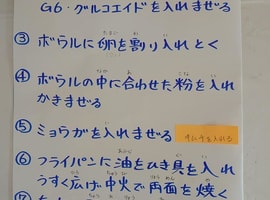 G6・グルコエイドを入れまぜる
③ ボウルに卵を割り入れとく
④ ボウルの中に合わせた粉を入れ
かきまぜる
⑤ ミョウガを入れまぜる
⑥ フライパンに油をひき具を入れ
うすく広げ中火で両面を焼く